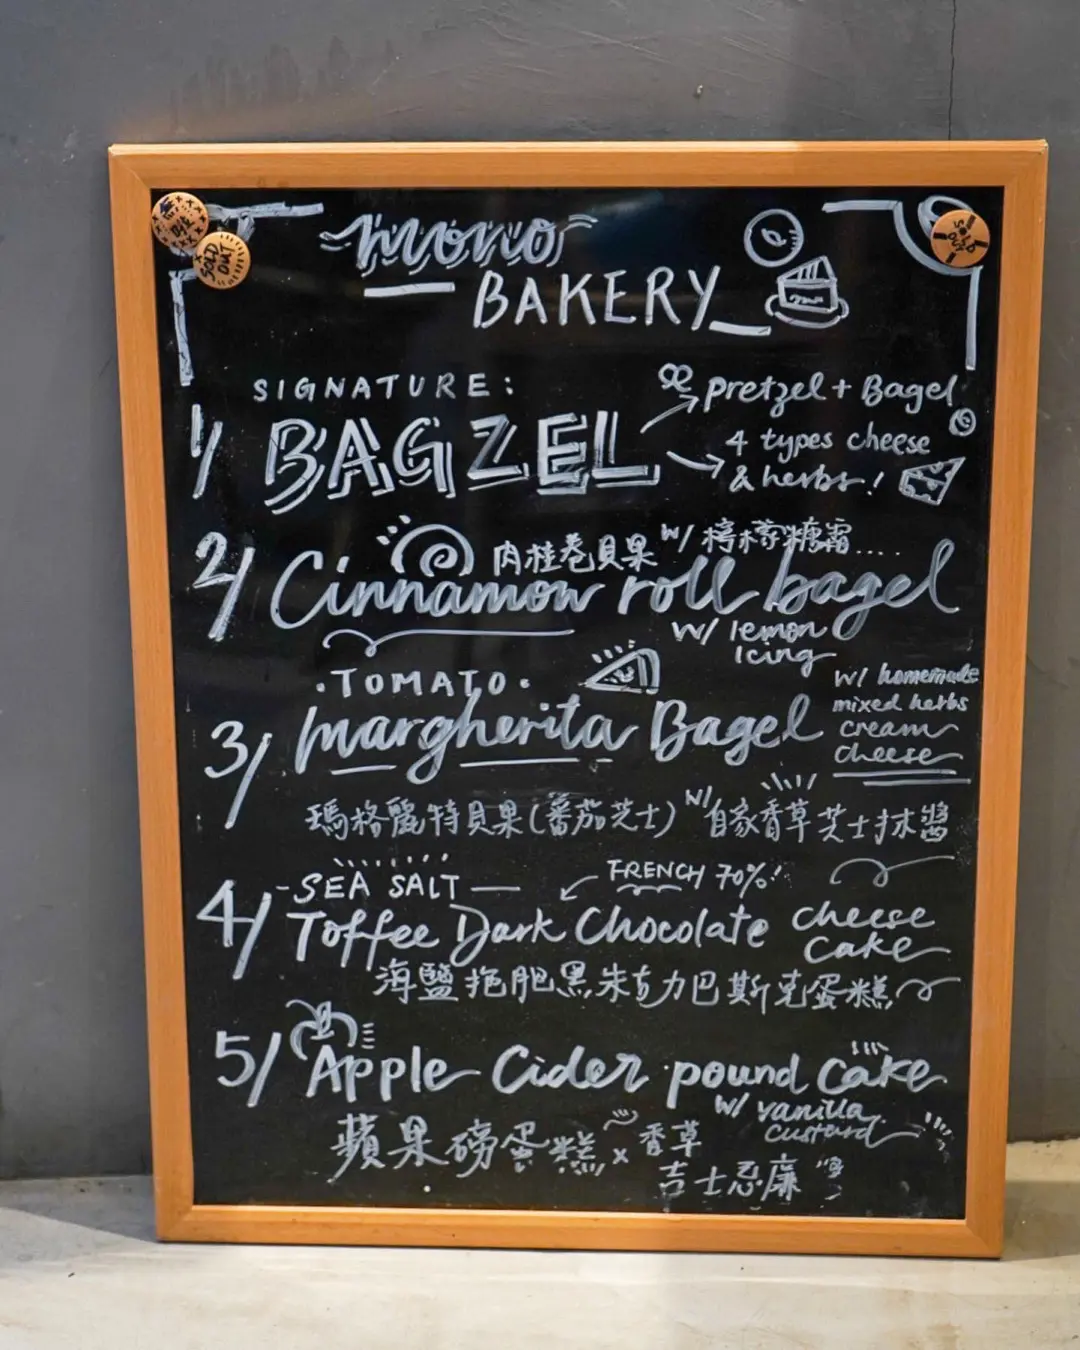 mono
BAKERY
SOLD OUT
SOLD
SIGNATURE:
1/ BAGZEL
pretzel + Bagel
4 types cheese
& herbs!
肉桂卷貝果 w/ 檸檬糖霜....
2/ Cinnamon roll bagel
w/ lemon
Icing
·TOMATO·
3/ Margherita Bagel
w/ homemade
mixed herbs
cream
cheese
瑪格麗特貝果(蕃茄芝士) w/ 自家香草芝士抹醬
-SEA SALT—
FRENCH 70%!
4/ Toffee Dark Chocolate cheese
cake
海鹽拖肥黑朱古力巴斯克蛋糕
5/ Apple Cider pound cake
w/ vanilla
custard
蘋果磅蛋糕 x 香草
吉士忌廉